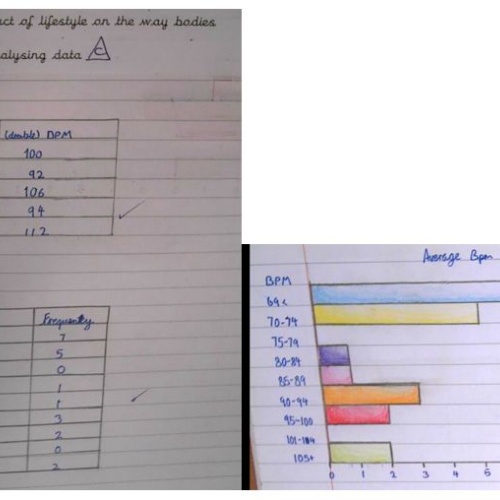 act of lifestyle on the way bodies
alysing data C
(double) BPM
100
92
106
94
112
Frequency
7
5
0
1
1
3
2
0
2
Average Bpm
BPM
69<
70-74
75-79
80-84
85-89
90-94
95-100
101-104
105+
0 1 2 3 4 5